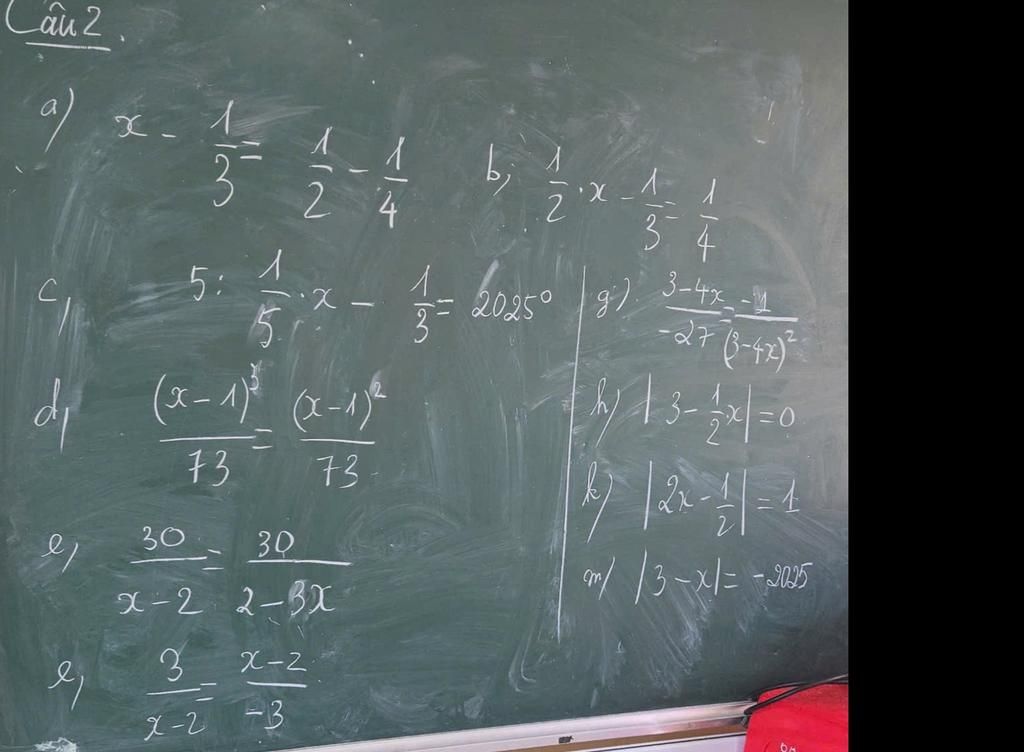 Câu 2.
a) x - 1/3 = 1/2 - 1/4
b, 1/2 . x - 1/3 = 1/4
c, 5 : 1/5 . x - 1/3 = 2025⁰
d, (x - 1)³/73 = (x - 1)²/73
e, 30/(x - 2) = 30/(2 - 3x)
e, 3/(x - 2) = (x - 2)/-3
g) (3 - 4x)/-27 = -1/(3 - 4x)²
h) |3 - 1/2 x| = 0
k) |2x - 1/2| = 1
m) |3 - x| = -2025